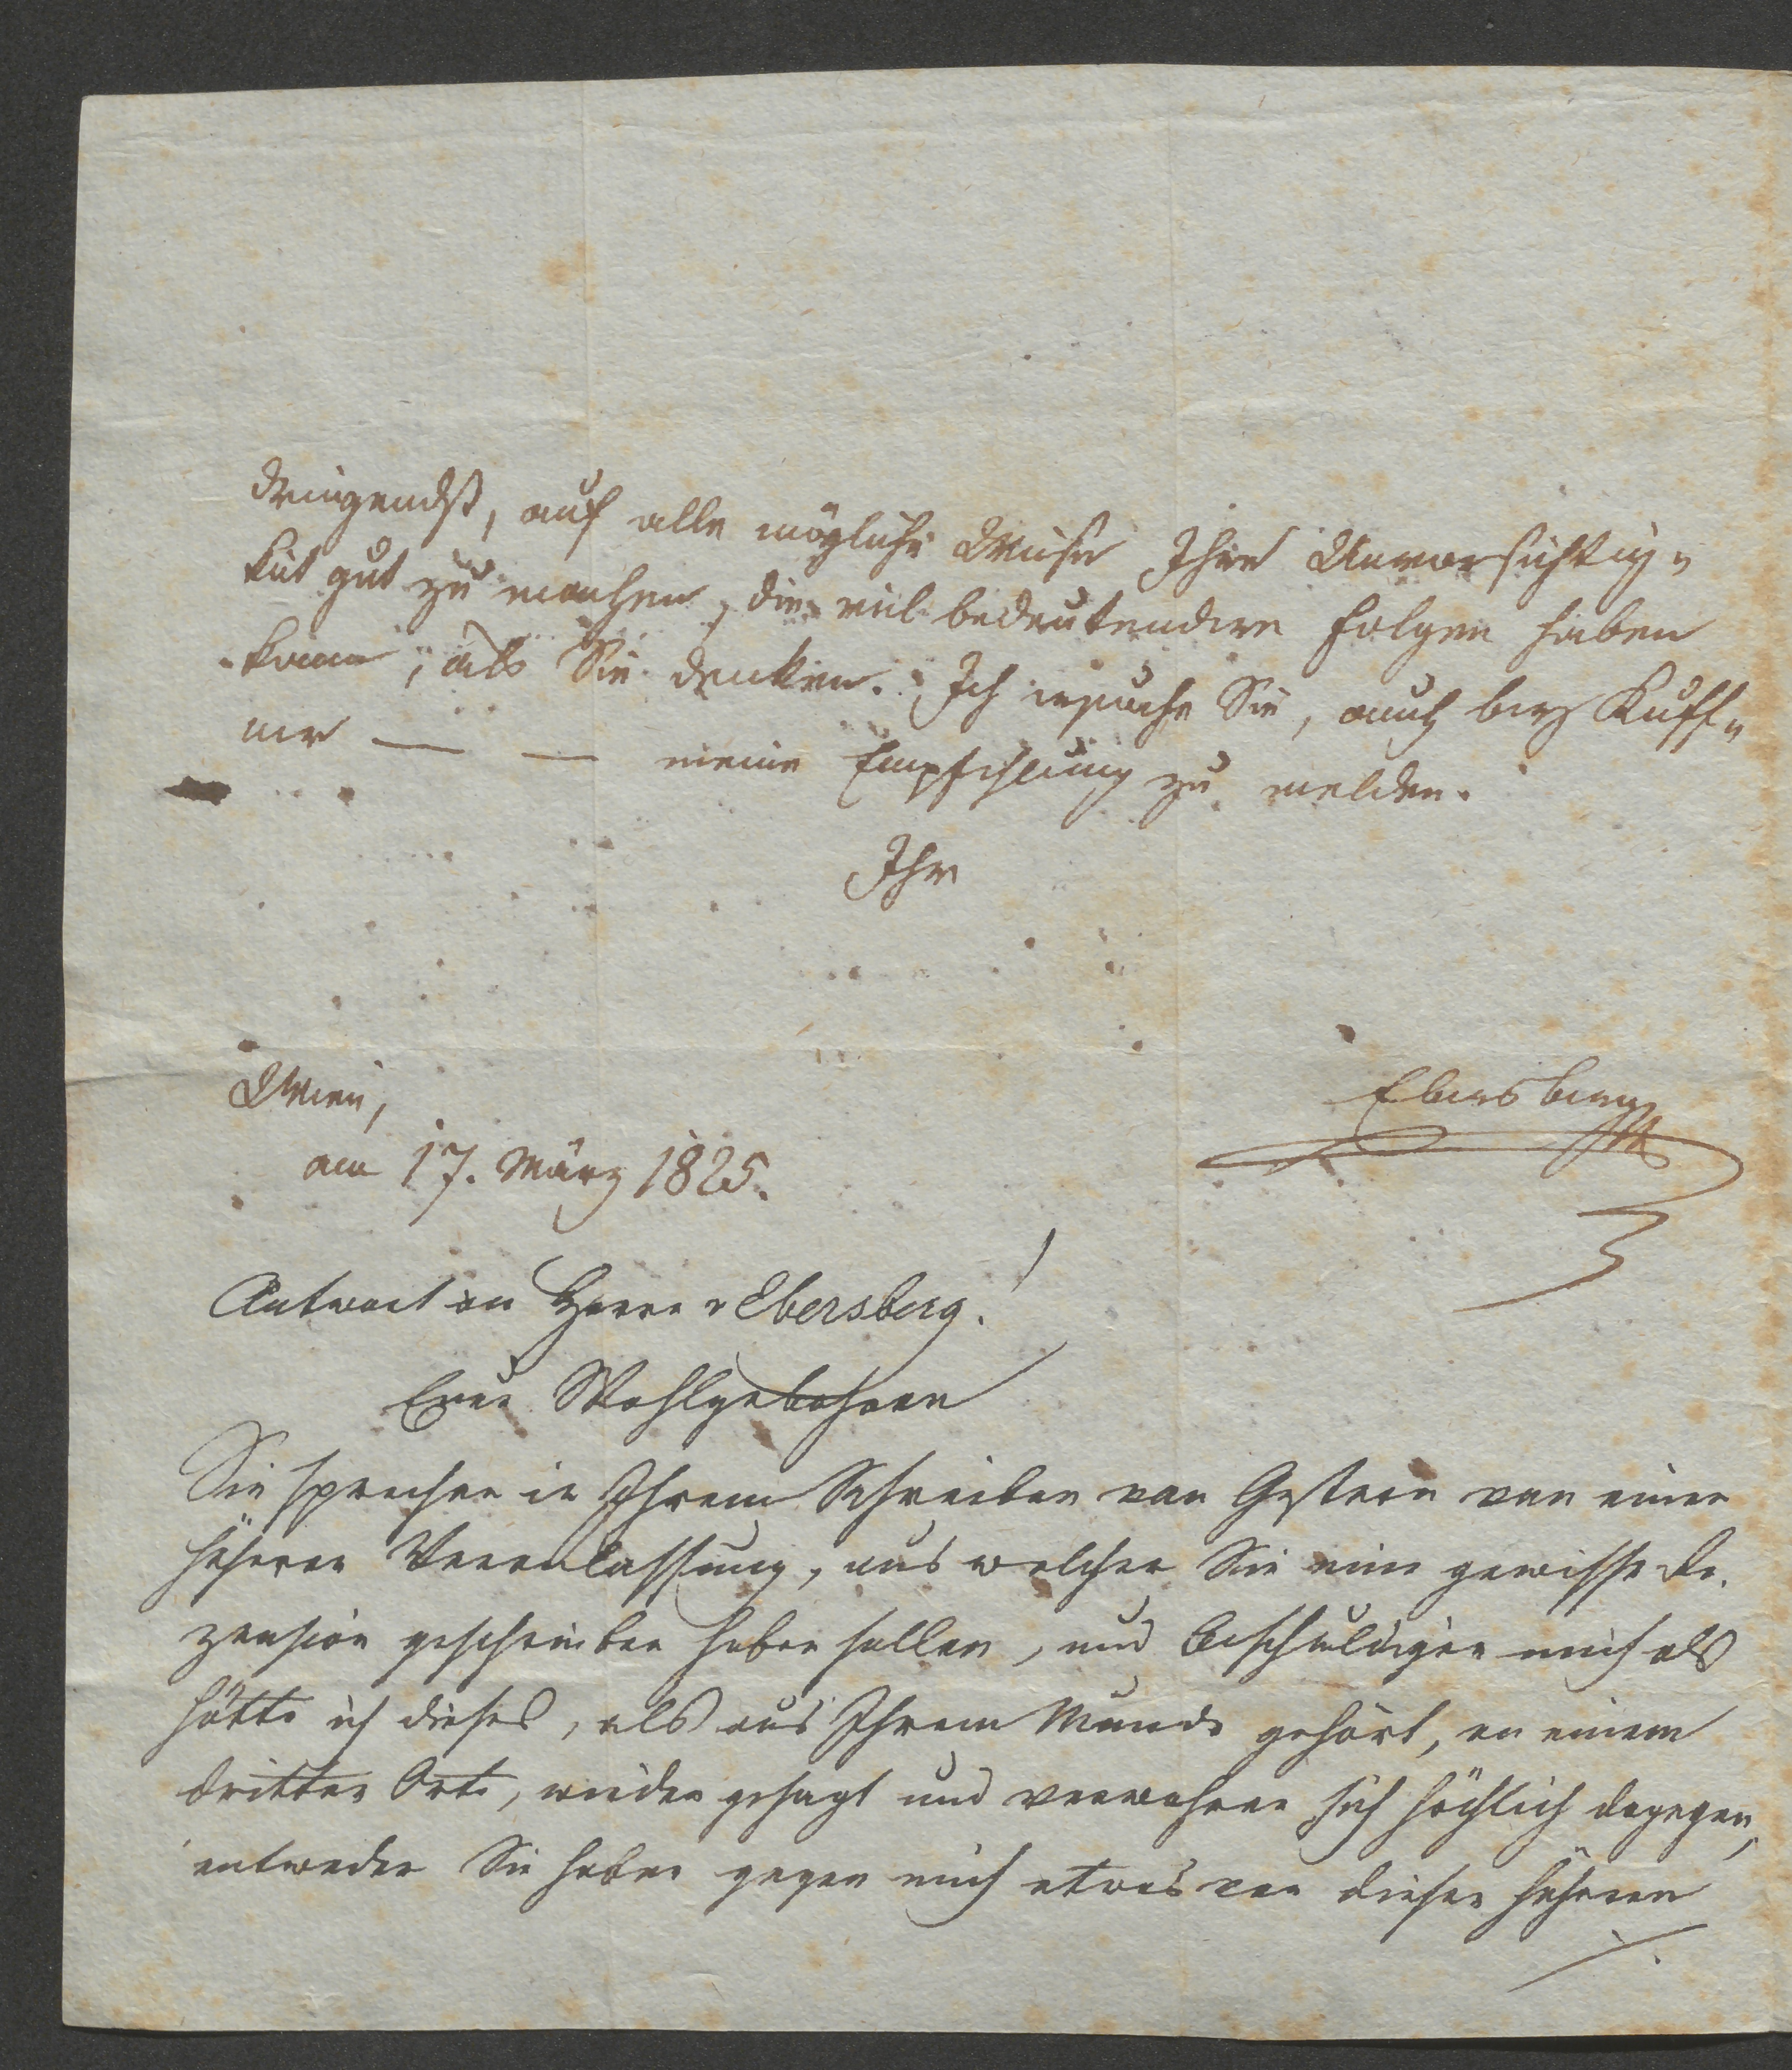 dringendst, auf alle mögliche Weise Ihre Unvorsichtig=
keit gut zu machen, die viel bedeutendere Folgen haben
kann, als Sie denken. Ich ersuche Sie, auch bey Kuff=
ner — — meine Empfehlung zu melden.
Ihr
Ebersberg
Wien,
am 17. März 1825.
Antwort an Herrn v Ebersberg!
Euer Wohlgebohren
Sie sprechen in Ihrem Schreiben von Gestern von einer
höheren Veranlassung, aus welcher Sie eine gewisse Re.
zension geschrieben haben sollen, und beschuldigen mich als
hätte ich dieses, als aus Ihrem Munde gehört, an einem
dritten Orte, wieder gesagt und verwahren sich höchlich dagegen,
entweder Sie haben gegen mich etwas von dieser höheren
./.